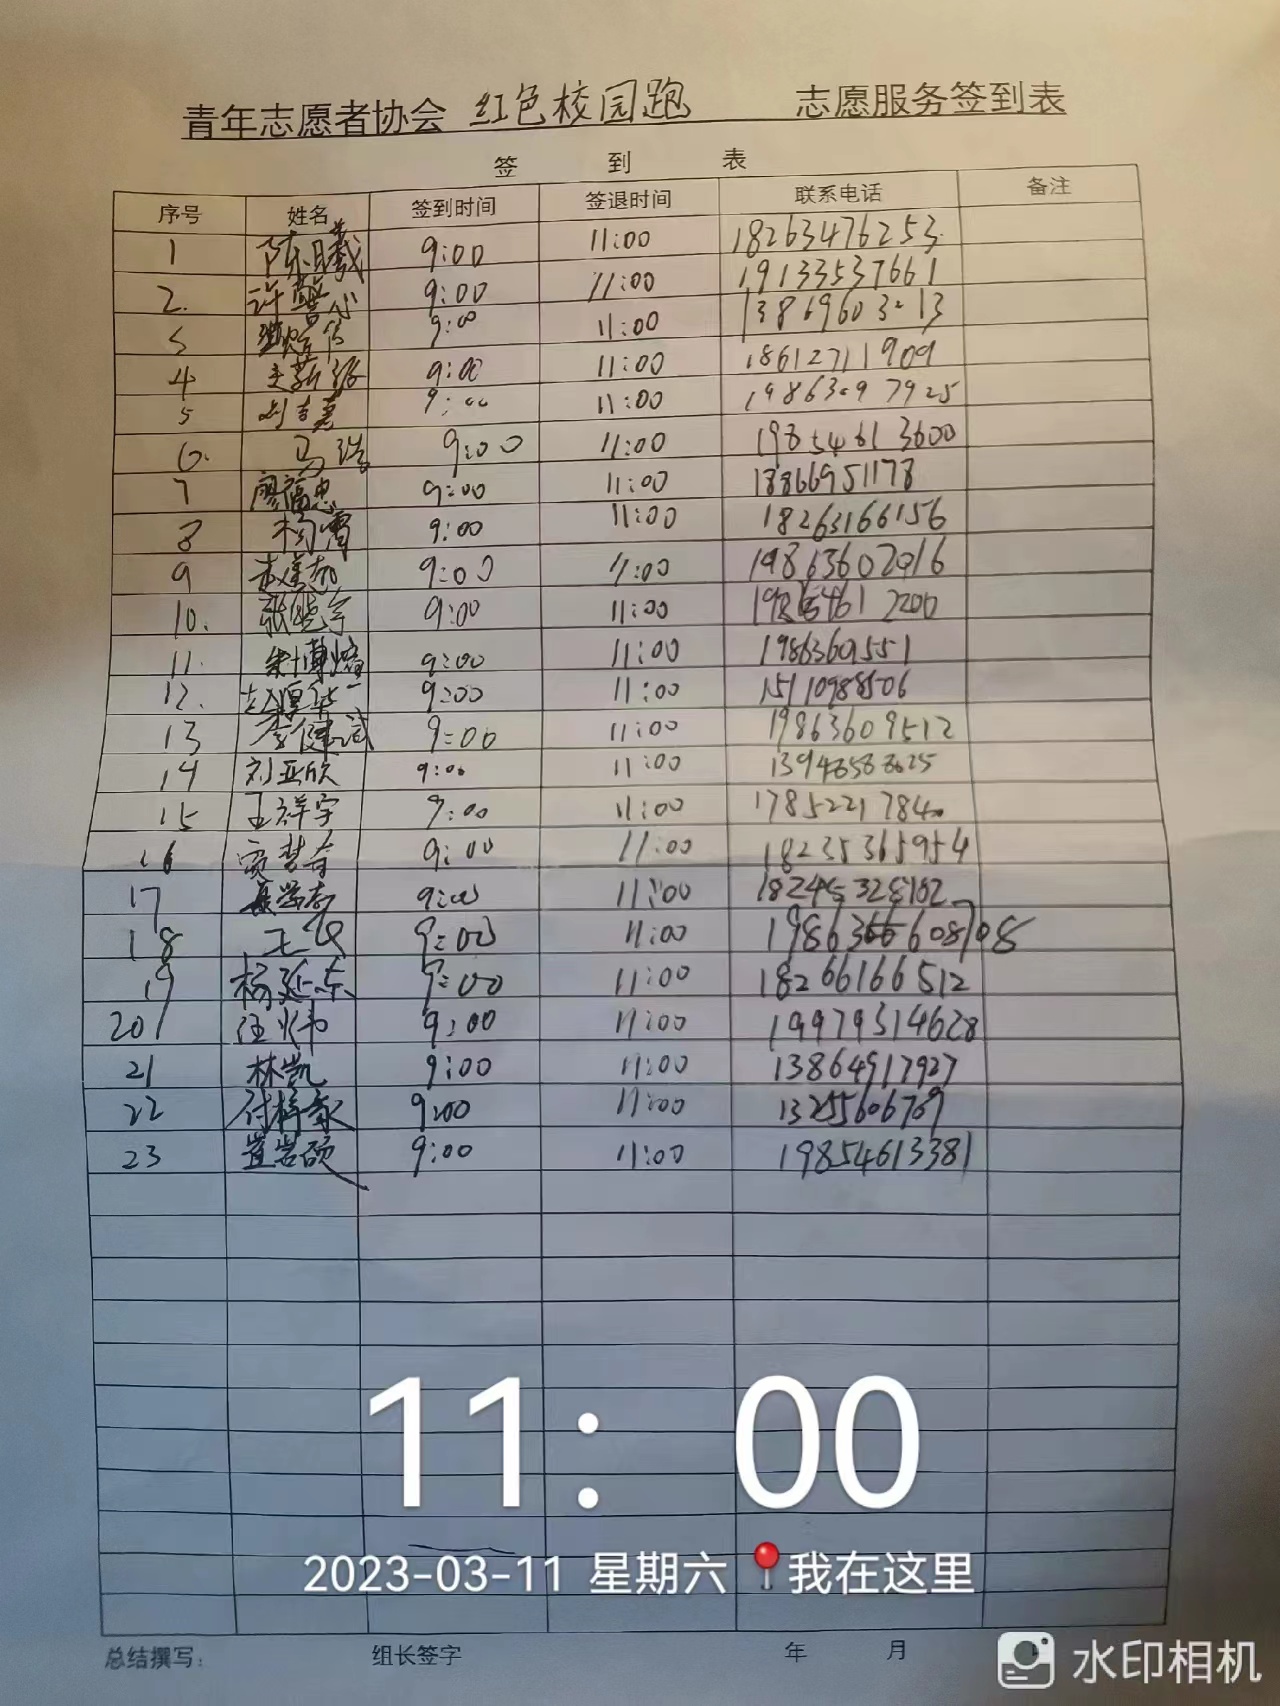 青年志愿者协会 红色校园跑 志愿服务签到表
签 到 表
序号 姓名 签到时间 签退时间 联系电话 备注
1 陈曦 9:00 11:00 18263476253
2. 许 9:00 11:00 19133537661
3 9:00 11:00 13869603213
4 9:00 11:00 18612711909
5 刘吉 9:00 11:00 19863097925
6. 马浩 9:00 11:00 19854613600
7 廖福忠 9:00 11:00 18866951178
8 杨 9:00 11:00 18263166156
9 9:00 11:00 19863602916
10. 张晓宇 9:00 11:00
11. 朱博 9:00 11:00 19863601551
12. 赵厚华 9:00 11:00 15110988506
13 李健斌 9:00 11:00 19863609512
14 刘亚欣 9:00 11:00
15 王祥宇 9:00 11:00 17852217840
16 贾梦奇 9:00 11:00 18235365954
17 聂学 9:00 11:00
18 王 9:00 11:00
19 杨延东 9:00 11:00 18266166512
20 汪炜 9:00 11:00 19979314628
21 林凯 9:00 11:00 13864917927
22 付梓豪 9:00 11:00 13255606709
23 崔岩硕 9:00 11:00 19854613381
11: 00
2023-03-11 星期六 我在这里
总结撰写: 组长签字 年 月
水印相机